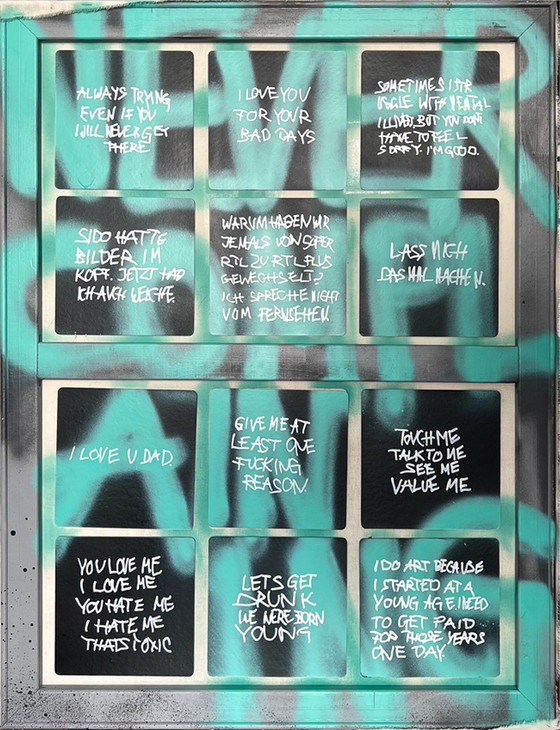 ALWAYS TRYING
EVEN IF YOU
WILL NEVER GET
THERE.
I LOVE YOU
FOR YOUR
BAD DAYS
SOMETIMES I STR
UGGLE WITH MENTAL
ILLNES, BUT YOU DONT
HAVE TO FEEL
SORRY. I'M GOOD.
SIDO HATTE
BILDER IM
KOPF. JETZT HAB
ICH AUCH WELCHE.
WARUM HABEN WIR
JEMALS VON SUPER
RTL ZU RTL PLUS
GEWECHSELT?
ICH SPRECHE NICHT
VOM FERNSEHEN.
LASS MICH
DAS MAL MACHEN.
I LOVE U DAD.
GIVE ME AT
LEAST ONE
FUCKING
REASON.
TOUCH ME
TALK TO ME
SEE ME
VALUE ME
YOU LOVE ME
I LOVE ME
YOU HATE ME
I HATE ME
THATS TOXIC
LETS GET
DRUNK
WE WERE BORN
YOUNG
I DO ART BECAUSE
I STARTED AT A
YOUNG AGE. I NEED
TO GET PAID
FOR THOSE YEARS
ONE DAY.